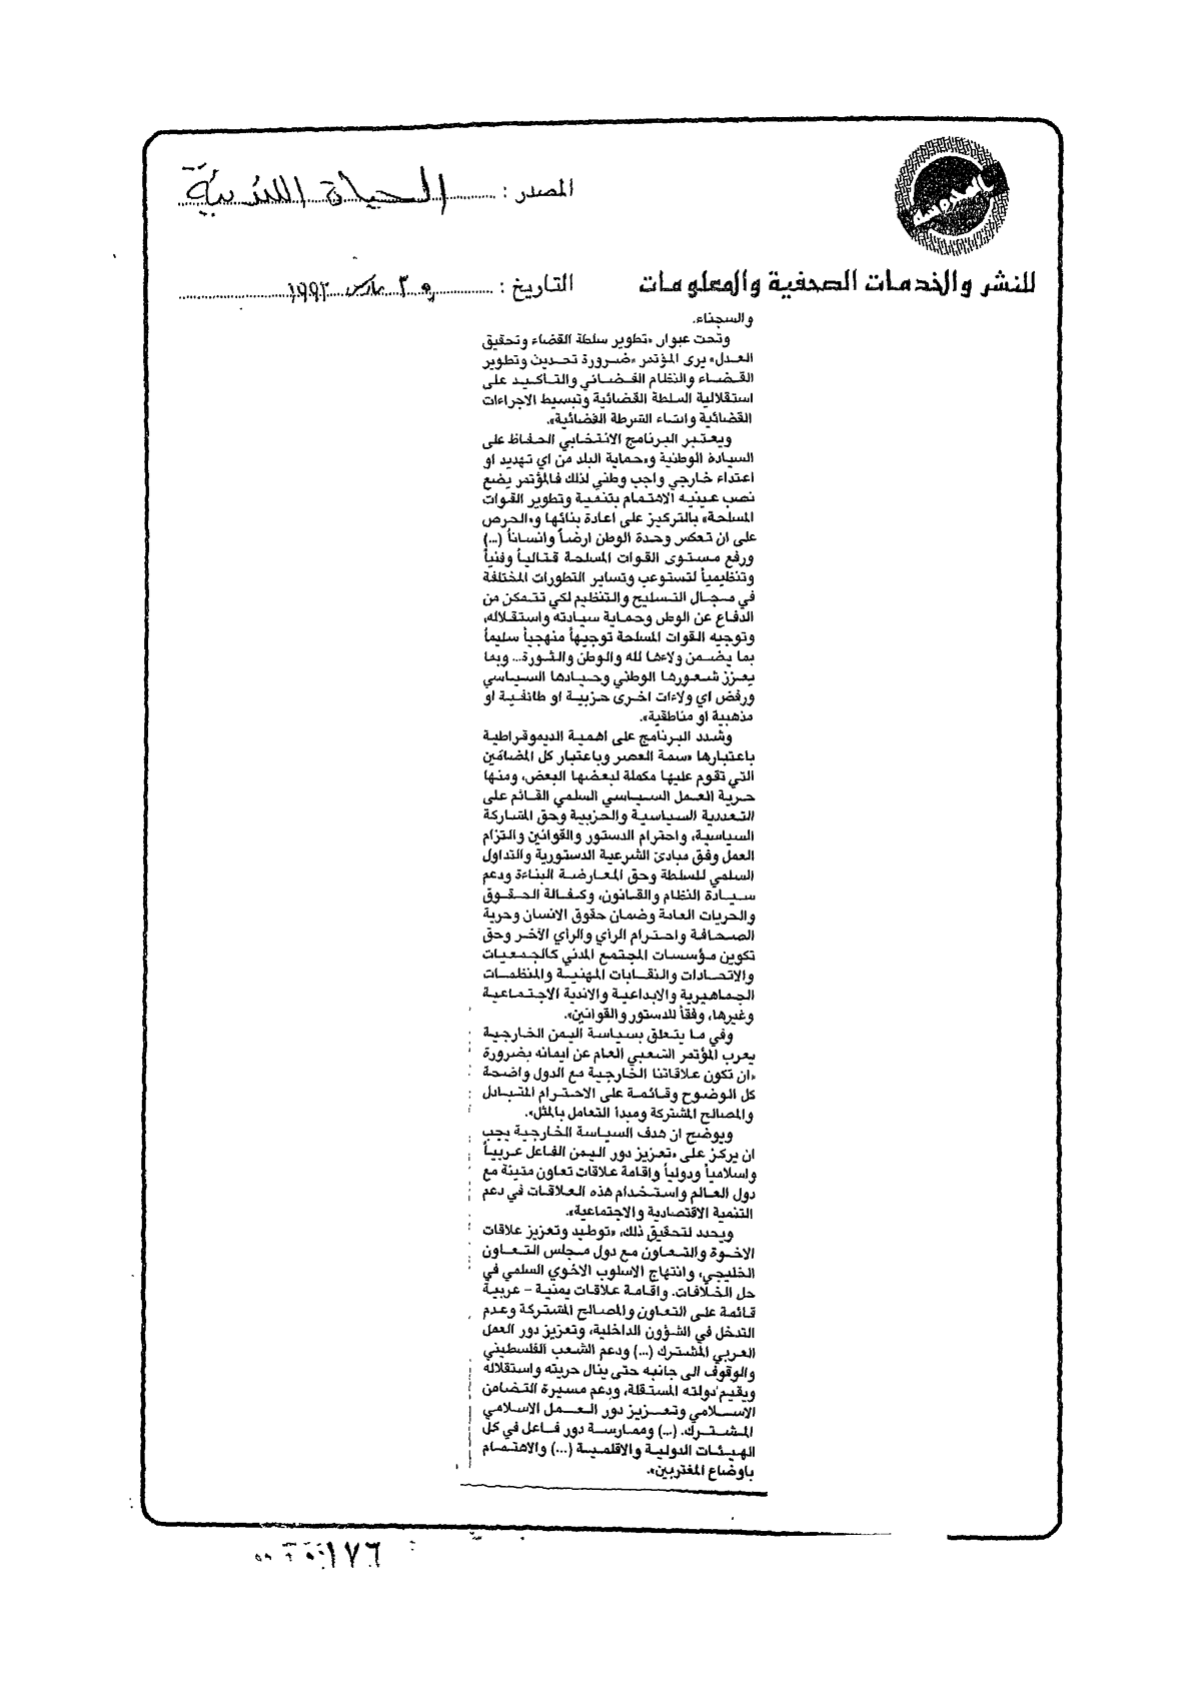 المصدر : الحياة اللندنية
للنشر والخدمات الصحفية والمعلومات
التاريخ : مارس ١٩٩٣
والسجناء.
وتحت عبوار «تطوير سلطة القضاء وتحقيق
العدل» يرى المؤتمر «ضرورة تحديث وتطوير
القضاء والنظام القضائي والتاكيد على
استقلالية السلطة القضائية وتبسيط الاجراءات
القضائية وانشاء الشرطة القضائية».
ويعتبر البرنامج الانتخابي الحفاظ على
السيادة الوطنية و«حماية البلد من اي تهديد او
اعتداء خارجي واجب وطني لذلك فالمؤتمر يضع
نصب عينيه الاهتمام بتنمية وتطوير القوات
المسلحة» بالتركيز على اعادة بنائها و«الحرص
على ان تعكس وحدة الوطن ارضاً وانساناً (...)
ورفع مستوى القوات المسلحة قتالياً وفنياً
وتنظيمياً لتستوعب وتساير التطورات المختلفة
في مجال التسليح والتنظيم لكي تتمكن من
الدفاع عن الوطن وحماية سيادته واستقلاله،
وتوجيه القوات المسلحة توجيهاً منهجياً سليماً
بما يضمن ولاءها لله والوطن والثورة... وبما
يعزز شعورها الوطني وحيادها السياسي
ورفض اي ولاءات اخرى حزبية او طائفية او
مذهبية او مناطقية».
وشدد البرنامج على اهمية الديموقراطية
باعتبارها «سمة العصر وباعتبار كل المضامين
التي تقوم عليها مكملة لبعضها البعض، ومنها
حرية العمل السياسي السلمي القائم على
التعددية السياسية والحزبية وحق المشاركة
السياسية، واحترام الدستور والقوانين والتزام
العمل وفق مبادئ الشرعية الدستورية والتداول
السلمي للسلطة وحق المعارضة البناءة ودعم
سيادة النظام والقانون، وكفالة الحقوق
والحريات العامة وضمان حقوق الانسان وحرية
الصحافة واحترام الرأي والرأي الآخر وحق
تكوين مؤسسات المجتمع المدني كالجمعيات
والاتحادات والنقابات المهنية والمنظمات
الجماهيرية والابداعية والاندية الاجتماعية
وغيرها، وفقاً للدستور والقوانين».
وفي ما يتعلق بسياسة اليمن الخارجية
يعرب المؤتمر الشعبي العام عن ايمانه بضرورة
«ان تكون علاقاتنا الخارجية مع الدول واضحة
كل الوضوح وقائمة على الاحترام المتبادل
والمصالح المشتركة ومبدأ التعامل بالمثل».
ويوضح ان هدف السياسة الخارجية يجب
ان يركز على «تعزيز دور اليمن الفاعل عربياً
واسلامياً ودولياً وإقامة علاقات تعاون متينة مع
دول العالم واستخدام هذه العلاقات في دعم
التنمية الاقتصادية والاجتماعية».
ويحدد لتحقيق ذلك، «توطيد وتعزيز علاقات
الاخوة والتعاون مع دول مجلس التعاون
الخليجي، وانتهاج الاسلوب الاخوي السلمي في
حل الخلافات. واقامة علاقات يمنية – عربية
قائمة على التعاون والمصالح المشتركة وعدم
التدخل في الشؤون الداخلية، وتعزيز دور العمل
العربي المشترك (...) ودعم الشعب الفلسطيني
والوقوف الى جانبه حتى ينال حريته واستقلاله
ويقيم دولته المستقلة، ودعم مسيرة التضامن
الاسلامي وتعزيز دور العمل الاسلامي
المشترك. (...) وممارسة دور فاعل في كل
الهيئات الدولية والاقلمية (...) والاهتمام
باوضاع المغتربين».